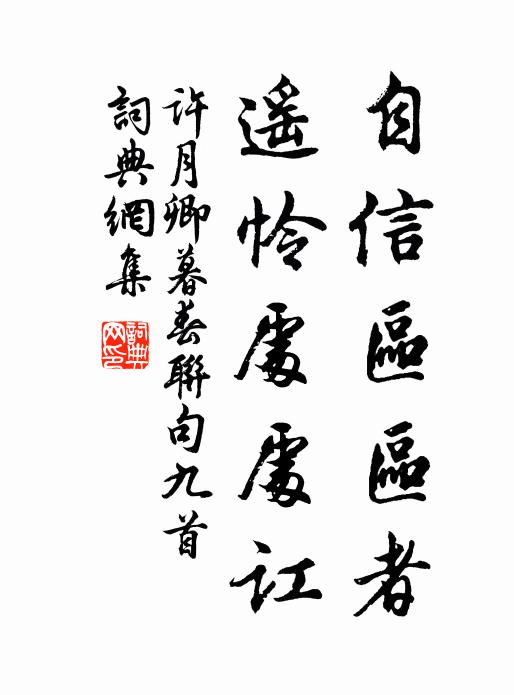 自信區區者
遥憐處處訌
許月卿暮春聯句九首
詞典網集
詞典网印